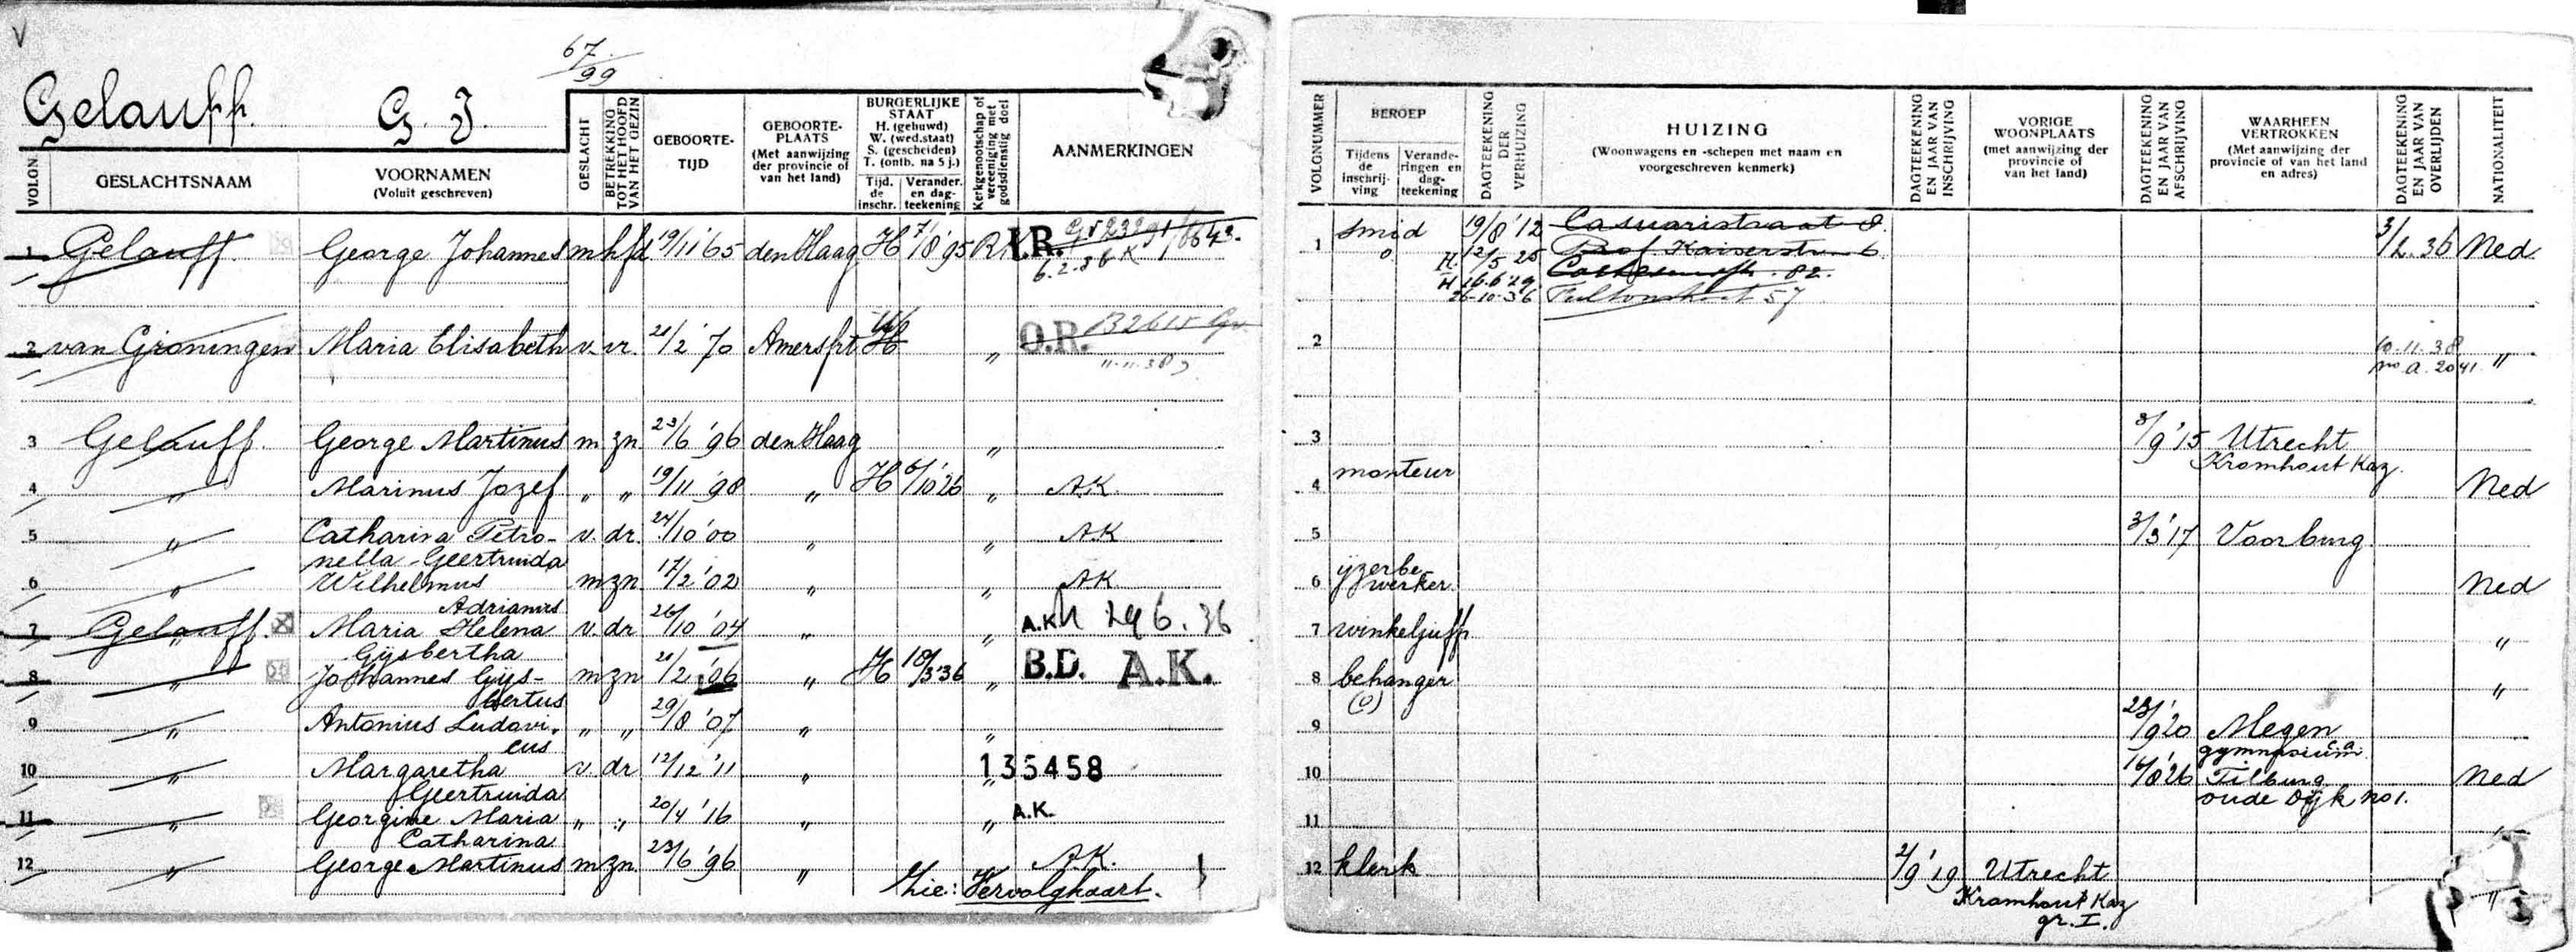 V
67/99
Gelauff. G. J.
VOLGN. GESLACHTSNAAM VOORNAMEN (Voluit geschreven) GESLACHT BETREKKING TOT HET HOOFD VAN HET GEZIN GEBOORTE-TIJD GEBOORTE-PLAATS (Met aanwijzing der provincie of van het land) BURGERLIJKE STAAT H. (gehuwd) W. (wed.staat) S. (gescheiden) T. (ontb. na 5 j.) Tijd. de inschr. Verander. en dag-teekening Kerkgenootschap of vereeniging met godsdienstig doel AANMERKINGEN
1 Gelauff. George Johannes m hfd 19/11 '65 den Haag H 7/8 '95 R.K.
6.2.36 K
2 van Groningen Maria Elisabeth v. vr. 21/2 '70 Amersfrt H W " O.R. B2615 Gv
11-11-38
3 Gelauff. George Martinus m zn. 23/6 '96 den Haag "
4 " Marinus Jozef " " 19/11 '98 " H 6/10 '26 " A.K.
5 " Catharina Petro- v. dr. 24/10 '00 " " A.K
nella Geertruida
6 " Wilhelmus m zn. 17/2 '02 " " A.K
Adrianus
7 Gelauff. " Maria Helena v. dr. 26/10 '04 " " A.K 29 6. 36
Gijsbertha
8 " Johannes Gijs- m zn 21/2 '06 " H 18/3 '36 " B.D. A.K.
bertus
9 " Antonius Ludovi- " " 29/8 '07 " "
cus
10 " Margaretha v. dr 12/12 '11 " " 135458
Geertruida
11 " Georgine Maria " " 20/4 '16 " " A.K.
Catharina
12 " George Martinus m zn. 23/6 '96 " A.K.
Zie: Vervolgkaart.
VOLGNUMMER BEROEP Tijdens de inschrij-ving Verande-ringen en dag-teekening DAGTEEKENING DER VERHUIZING HUIZING (Woonwagens en -schepen met naam en voorgeschreven kenmerk) DAGTEEKENING EN JAAR VAN INSCHRIJVING VORIGE WOONPLAATS (met aanwijzing der provincie of van het land) DAGTEEKENING EN JAAR VAN AFSCHRIJVING WAARHEEN VERTROKKEN (Met aanwijzing der provincie of van het land en adres) DAGTEEKENING EN JAAR VAN OVERLIJDEN NATIONALITEIT
1 smid 19/8 '12 Casuaristraat 8. 3/2.36 Ned
H. 12/5 25 Prof. Kaiserstr. 6.
H 16.6 '29 82.
26-10-36 Fultonstraat 57
2 10-11-38 "
no a. 2041.
3 8/9 '15 Utrecht
Kromhout Kaz.
4 monteur Ned
5 3/3 '17 Voorburg
6 ijzerbe- Ned
werker.
7 winkeljuff. "
8 behanger "
(o)
9 23/9 '20 Megen
gymnasium
10 16/8 '26 Tilburg Ned
oude Dijk no 1.
11 "
12 klerk 2/9 '19 Utrecht "
Kromhout Kaz
gr. I.